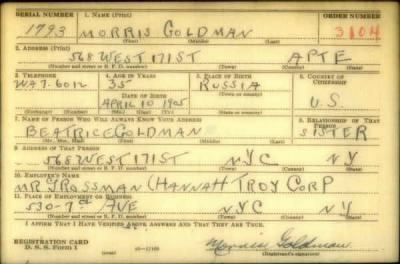 SERIAL NUMBER 1. NAME (Print) ORDER NUMBER
1793 MORRIS GOLDMAN 3104
(First) (Middle) (Last)
2. ADDRESS (Print)
568 WEST 171ST APT E
(Number and street or R. F. D. number) (Town) (County) (State)
3. TELEPHONE 4. AGE IN YEARS 5. PLACE OF BIRTH 6. COUNTRY OF CITIZENSHIP
WA 7-6012 35 RUSSIA
DATE OF BIRTH (Town or county)
APRIL 10 1905 U.S.
(Exchange) (Number) (Mo.) (Day) (Yr.) (State or country)
7. NAME OF PERSON WHO WILL ALWAYS KNOW YOUR ADDRESS 8. RELATIONSHIP OF THAT PERSON
BEATRICE GOLDMAN SISTER
(Mr., Mrs., Miss) (First) (Middle) (Last)
9. ADDRESS OF THAT PERSON
568 WEST 171ST NYC NY
(Number and street or R. F. D. number) (Town) (County) (State)
10. EMPLOYER'S NAME
MR GROSSMAN (HANNAH TROY CORP
11. PLACE OF EMPLOYMENT OR BUSINESS
530-7th AVE NYC NY
(Number and street or R. F. D. number) (Town) (County) (State)
I AFFIRM THAT I HAVE VERIFIED ABOVE ANSWERS AND THAT THEY ARE TRUE.
REGISTRATION CARD
D. S. S. Form 1 Morris Goldman
(Registrant's signature)